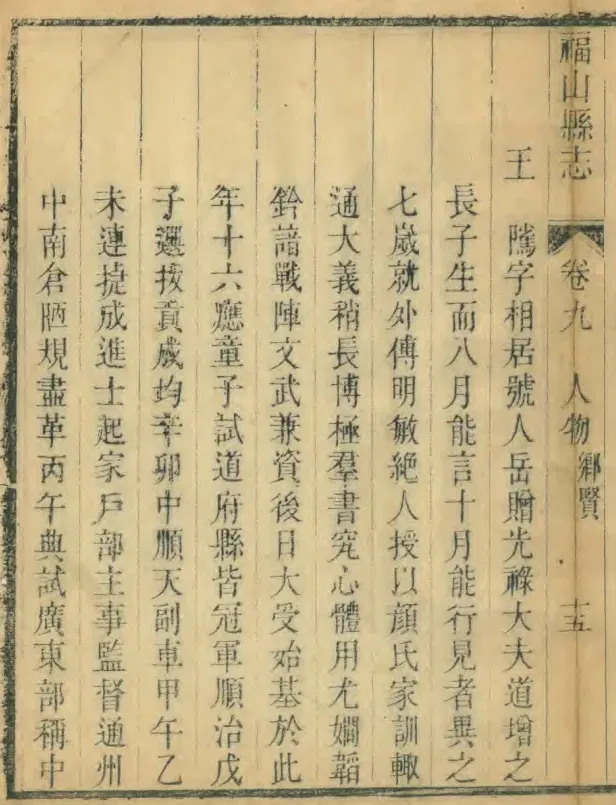 福山縣志 卷九 人物 鄉賢 十五
王 隲字相居號人岳贈光祿大夫道增之
長子生而八月能言十月能行見者異之
七歲就外傅明敏絕人授以顏氏家訓輙
通大義稍長博極羣書究心體用尤嫺韜
鈐諳戰陣文武兼資後日大受始基於此
年十六應童子試道府縣皆冠軍順治戊
子選拔貢成均辛卯中順天副車甲午乙
未連捷成進士起家戶部主事監督通州
中南倉陋規盡革丙午典試廣東部稱中